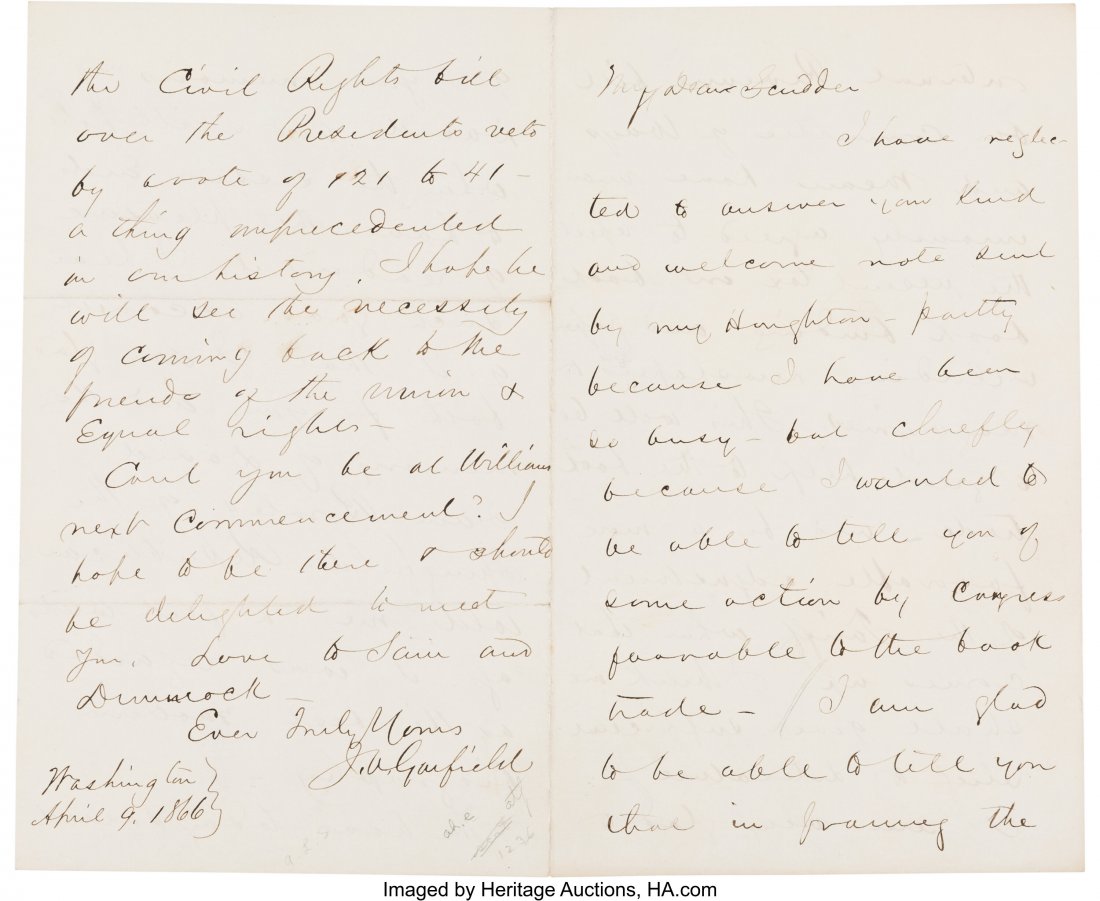 My Dear Scudder
I have neglec-
ted to answer your kind
and welcome note sent
by my Houghton - partly
because I have been
so busy - but chiefly
because I wanted to
be able to tell you of
some action by Congress
favorable to the book
trade - I am glad
to be able to tell you
that in framing the
the Civil Rights bill
over the Presidents veto
by a vote of 121 to 41 -
a thing unprecedented
in our history. I hope he
will see the necessity
of coming back to the
friends of the Union &
Equal rights -
Cant you be at Williams
next Commencement? I
hope to be there & should
be delighted to meet
you. Love to and
Dimmock -
Ever Truly Yours
J.A. Garfield
Washington
April 9. 1866
Imaged by Heritage Auctions, HA.com